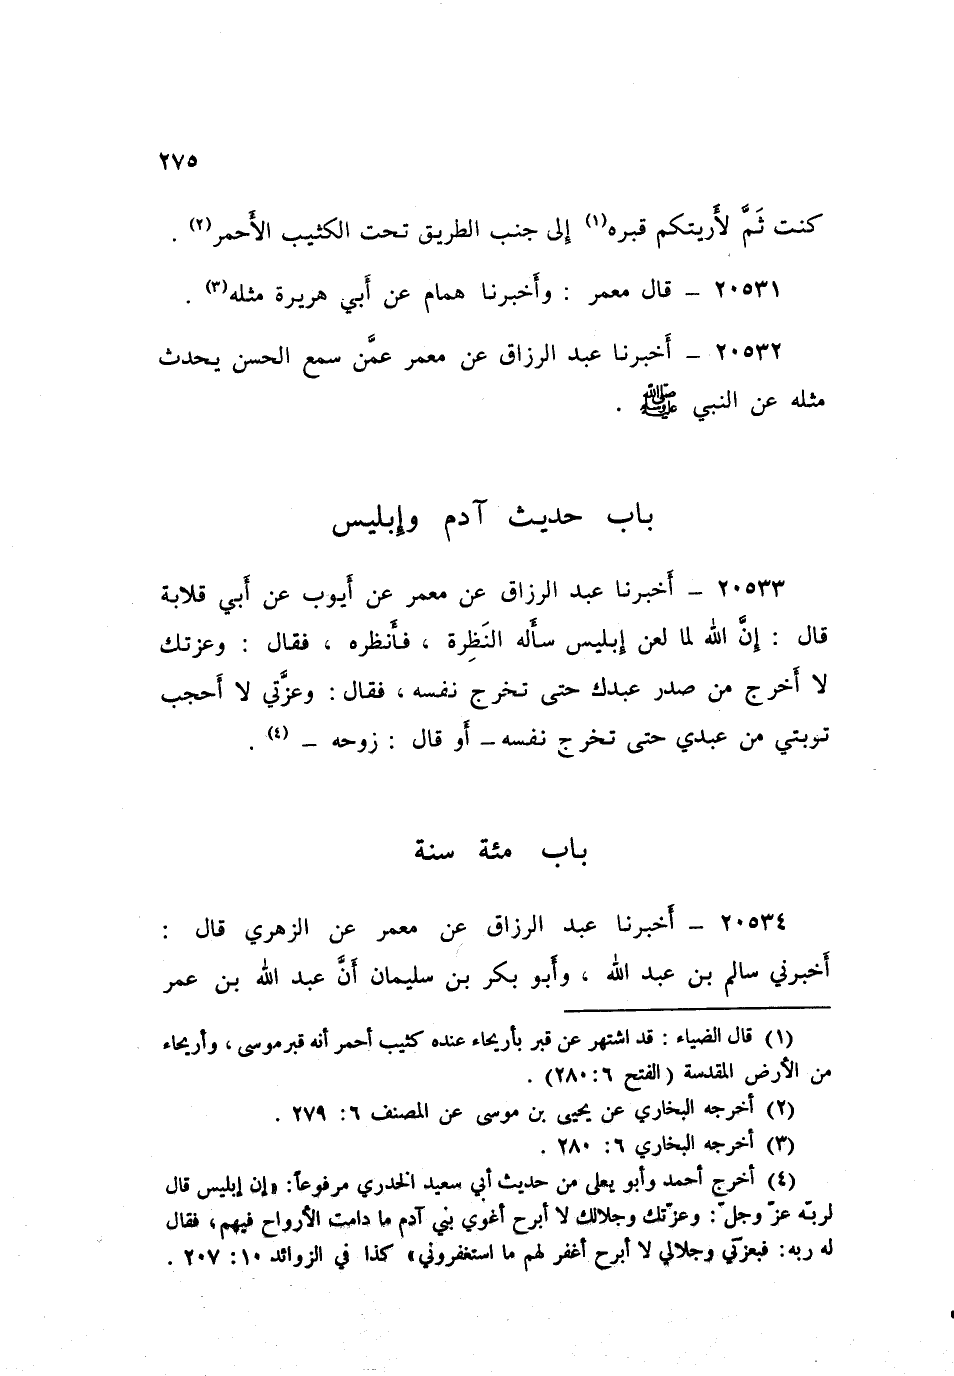 ٢٧٥
كنت ثَمَّ لأَريتكم قبره(١) إلى جنب الطريق تحت الكثيب الأَحمر(٢) .
٢٠٥٣١ – قال معمر : وأَخبرنا همام عن أَبي هريرة مثله(٣) .
٢٠٥٣٢ – أَخبرنا عبد الرزاق عن معمر عمَّن سمع الحسن يحدث
مثله عن النبي ﷺ .
باب حديث آدم وإبليس
٢٠٥٣٣ – أَخبرنا عبد الرزاق عن معمر عن أَيوب عن أَبي قلابة
قال : إنَّ الله لما لعن إبليس سأَله النَظِرة ، فأَنظره ، فقال : وعزتك
لا أَخرج من صدر عبدك حتى تخرج نفسه ، فقال : وعزَّتي لا أَحجب
توبتي من عبدي حتى تخرج نفسه – أَو قال : زوحه – (٤) .
باب مئة سنة
٢٠٥٣٤ – أَخبرنا عبد الرزاق عن معمر عن الزهري قال :
أَخبرني سالم بن عبد الله ، وأَبو بكر بن سليمان أَنَّ عبد الله بن عمر
(١) قال الضياء : قد اشتهر عن قبر بأريحاء عنده كثيب أحمر أنه قبر موسى ، وأريحاء
من الأرض المقدسة (الفتح ٦: ٢٨٠) .
(٢) أخرجه البخاري عن يحيى بن موسى عن المصنف ٦: ٢٧٩ .
(٣) أخرجه البخاري ٦: ٢٨٠ .
(٤) أخرج أحمد وأبو يعلى من حديث أبي سعيد الخدري مرفوعاً: «إن إبليس قال
لربّه عزّ وجلّ: وعزّتك وجلالك لا أبرح أغوي بني آدم ما دامت الأرواح فيهم، فقال
له ربه: فبعزّتي وجلالي لا أبرح أغفر لهم ما استغفروني» كذا في الزوائد ١٠: ٢٠٧ .